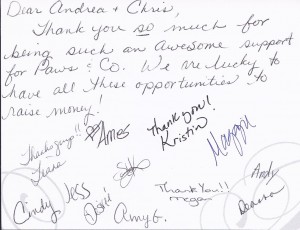 Dear Andrea + Chris,
Thank you so much for
being such an awesome support
for Paws & Co. We are lucky to
have all these opportunities to
raise money!
Thanks guys!!
Ames
Thank you!
Kristin
Maggie
Cindy
Jess
Amy G.
Thank You!!
Megan
Andy
Deanna